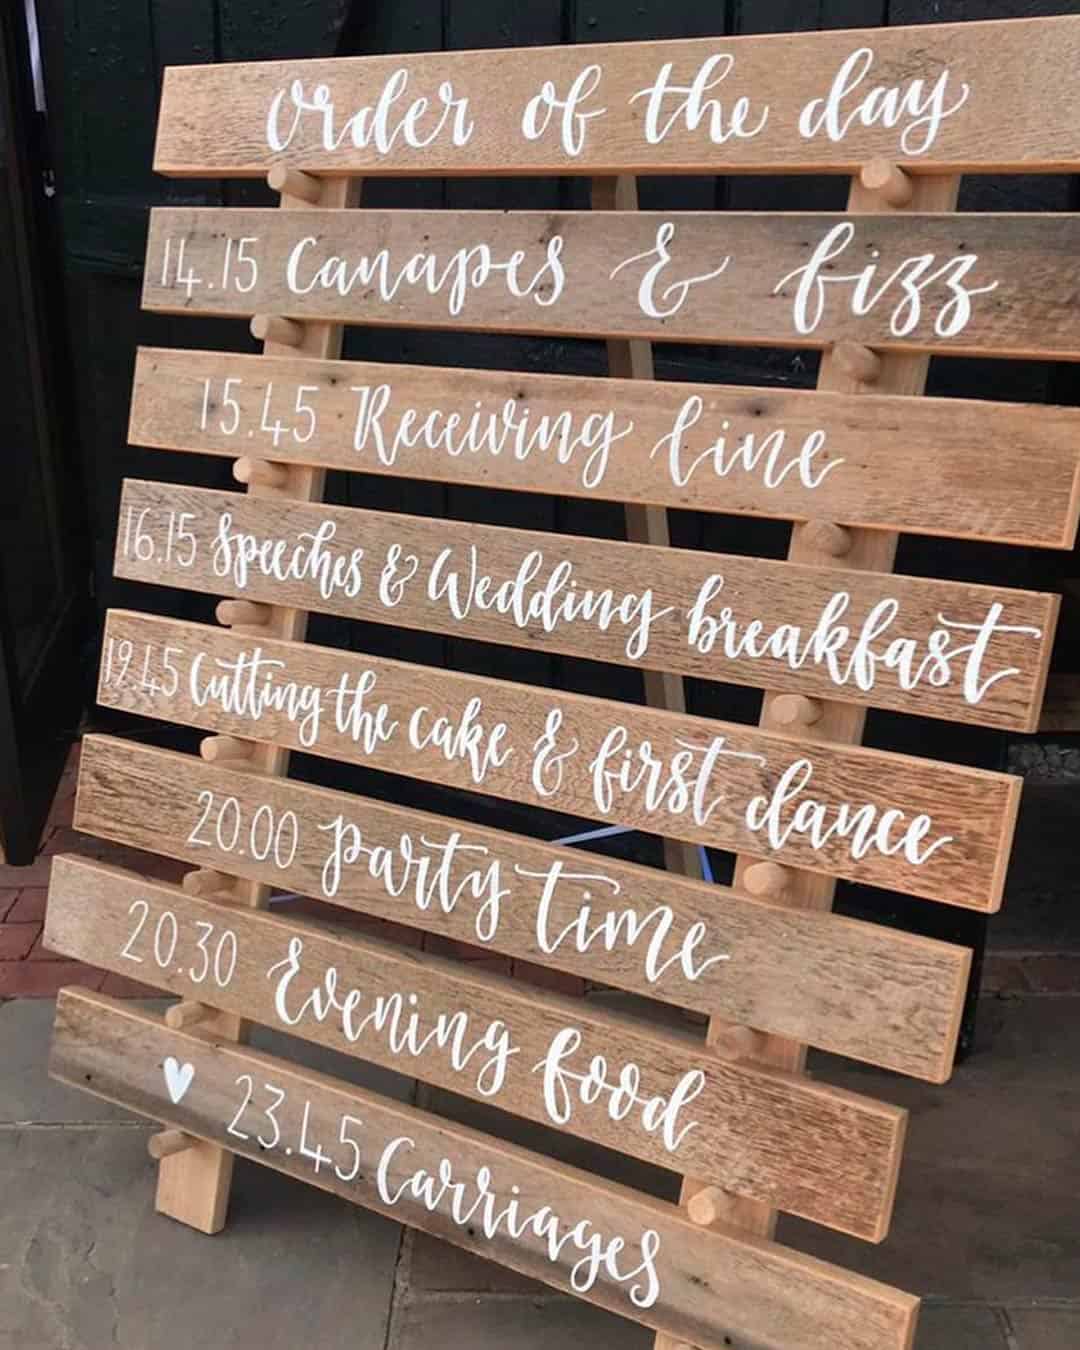 Order of the day
14.15 Canapes & fizz
15.45 Receiving line
16.15 Speeches & Wedding breakfast
19.45 Cutting the cake & first dance
20.00 Party time
20.30 Evening food
♥ 23.45 Carriages